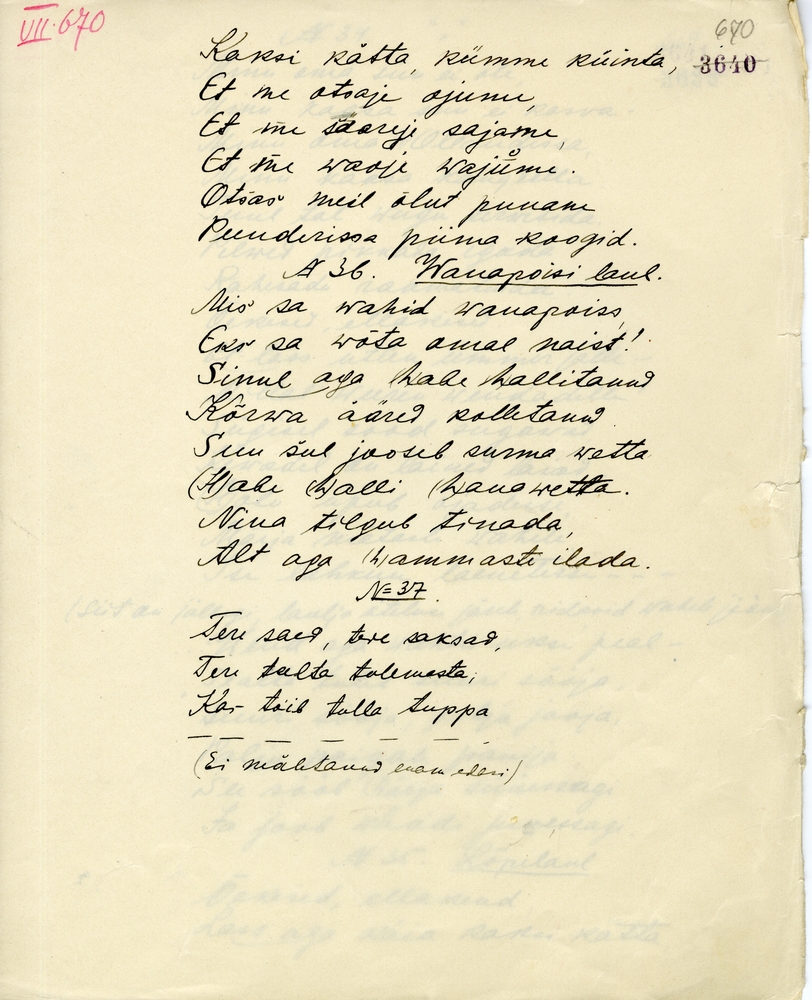 VII. 670
670
3640
Kaksi kätta, kümme küinta,
Et me otsaje ojume,
Et me sääreje sajame,
Et me waoje wajume.
Otsas meil õlut punane
Peenderissa piima koogid.
№ 36. Wanapoisi laul.
Mis sa wahid wanapoiss,
Eks sa wõta omal naist!
Sinul aga habe hallitanud
Kõrwa ääred kolletanud
Suu sul jooseb surma wetta
(H)abe (h)alli (h)anawetta.
Nina tilgub tinada,
Alt aga (h)ammaste ilada.
№ 37.
Tere saed, tere saksad,
Tere tulta tulemesta,
Kas tõib tulla tuppa
(Ei mäletanud enam edasi)